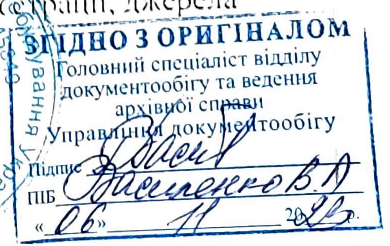 страції, джерела
ЗГІДНО З ОРИГІНАЛОМ
Головний спеціаліст відділу
документообігу та ведення
архівної справи
Управління документообігу
Підпис
ПІБ Василенко В.А
«06» 11 2023р.